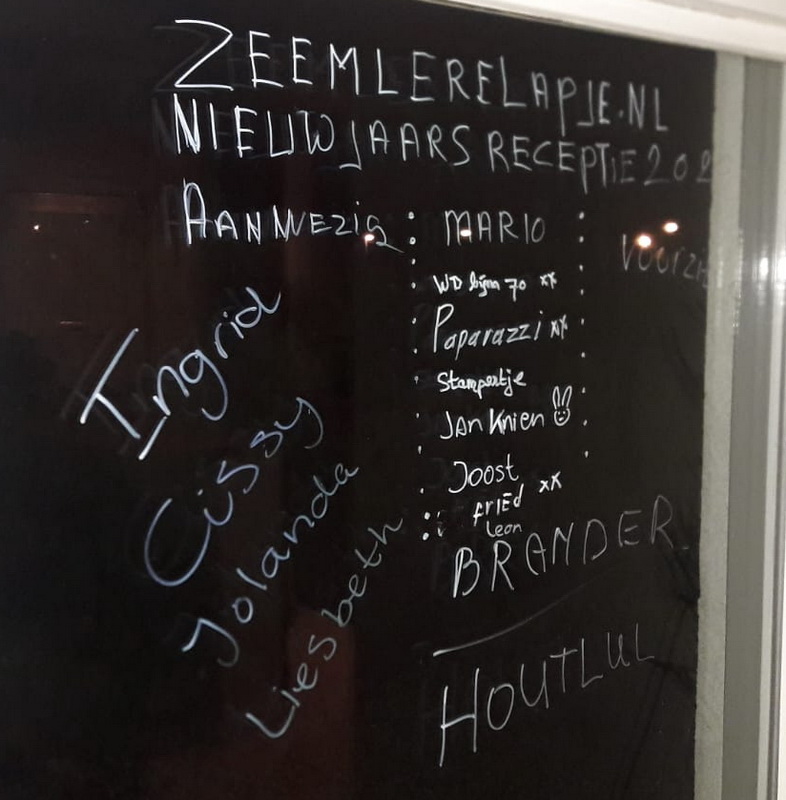 ZEEMLERELAPJE.NL
NIEUWJAARS RECEPTIE 202
AANWEZIG : MARIO :
WD bijna 70 xx
Paparazzi xx
Stampertje
Jan Knien
Joost
FRIEd xx
Leon
BRANDER
HOUTLUL
Ingrid
Cissy
Jolanda
Liesbeth